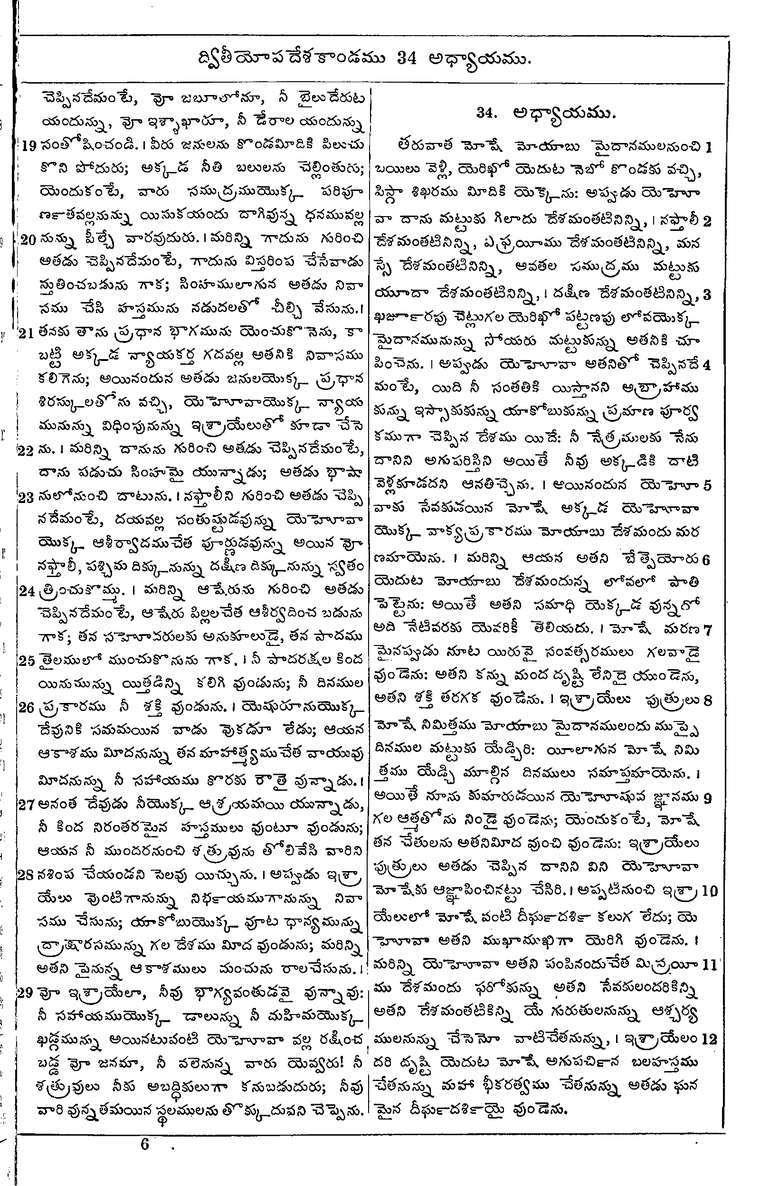 ద్వితీయోపదేశకాండము 34 అధ్యాయము.
చెప్పినదేమంటే, వోా జబూలోనూ, నీ బైలుదేరుట
యందున్ను, వోా ఇశ్శాఖారూ, నీ డేరాల యందున్ను
19 సంతోషించండి. । వీరు జనులను కొండమీదికి పిలుచు
కొని పోదురు; అక్కడ నీతి బలులను చెల్లింతురు;
యెందుకంటే, వారు సముద్రముయొక్క పరిపూ
ణ౯తవల్లనున్ను యిసుకయందు దాగివున్న ధనమువల్ల
20 నున్ను పీల్చే వారవుదురు. । మరిన్ని గాదును గురించి
అతడు చెప్పినదేమంటే, గాదును విస్తరింప చేసేవాడు
స్తుతించబడును గాక; సింహములాగున అతడు నివా
సము చేసి హస్తమును నడుదలతో చీల్చి వేసును. ।
21 తనకు తాను ప్రధాన భాగమును యెంచుకొనెను, కా
బట్టి అక్కడ న్యాయకర్త గదవల్ల అతనికి నివాసము
కలిగెను; అయినందున అతడు జనులయొక్క ప్రధాన
శిరస్కులతోను వచ్చి, యెహోవాయొక్క న్యాయ
మునున్ను విధింపునున్ను ఇశ్రాయేలుతో కూడా చేసె
22 ను. । మరిన్ని దానును గురించి అతడు చెప్పినదేమంటే,
దాను పడుచు సింహమై యున్నాడు; అతడు భాషా
23 నులోనుంచి దాటును. । నఫ్తాలీని గురించి అతడు చెప్పి
నదేమంటే, దయవల్ల సంతుష్టుడవున్ను యెహోవా
యొక్క ఆశీర్వాదముచేత పూర్ణుడవున్ను అయిన వోా
నఫ్తాలీ, పశ్చిమ దిక్కునున్ను దక్షిణ దిక్కునున్ను స్వతం
24 త్రించుకొమ్ము. । మరిన్ని ఆషేరును గురించి అతడు
చెప్పినదేమంటే, ఆషేరు పిల్లలచేత ఆశీర్వదించ బడును
గాక; తన సహోదరులకు అనుకూలుడై, తన పాదము
25 తైలములో ముంచుకొనును గాక. । నీ పాదరక్షల కింద
యినుమున్ను యిత్తడిన్ని కలిగి వుండును; నీ దినముల
26 ప్రకారము నీ శక్తి వుండును. । యెషురూనుయొక్క
దేవునికి సమమయిన వాడు వొకడూ లేడు; ఆయన
ఆకాశము మీదనున్ను తన మాహాత్మ్యముచేత వాయువు
మీదనున్ను నీ సహాయము కొరకు రౌతై వున్నాడు. ।
27 అనంత దేవుడు నీయొక్క ఆశ్రయమయి యున్నాడు,
నీ కింద నిరంతరమైన హస్తములు వుంటూ వుండును;
ఆయన నీ ముందరనుంచి శత్రువును తోలివేసి వారిని
28 నశింప చేయండని సెలవు యిచ్చును. । అప్పుడు ఇశ్రా
యేలు వొంటిగానున్ను నిభ౯యముగానున్ను నివా
సము చేసును; యాకోబుయొక్క వూట ధాన్యమున్ను
ద్రాక్షారసమున్ను గల దేశము మీద వుండును; మరిన్ని
అతని పైనున్న ఆకాశములు మంచును రాలచేసును. ।
29 వోా ఇశ్రాయేలా, నీవు భాగ్యవంతుడవై వున్నావు:
నీ సహాయముయొక్క డాలున్ను నీ మహిమయొక్క
ఖడ్గమున్ను అయినటువంటి యెహోవా వల్ల రక్షించ
బడ్డ వోా జనమా, నీ వలెనున్న వారు యెవ్వరు! నీ
శత్రువులు నీకు అబద్ధికులుగా కనుబడుదురు; నీవు
వారి వున్నతమయిన స్థలములను తొక్కుదువని చెప్పెను.
34. అధ్యాయము.
తరువాత మోషే మోయాబు మైదానములనుంచి 1
బయిలు వెళ్లి, యెరిఖో యెదుట నెబో కొండకు వచ్చి,
పిస్గా శిఖరము మీదికి యెక్కెను: అప్పుడు యెహో
వా దాను మట్టుకు గిలాదు దేశమంతటినిన్ని, । నఫ్తాలీ 2
దేశమంతటినిన్ని, ఎఫ్రయీము దేశమంతటినిన్ని, మన
స్సే దేశమంతటినిన్ని, అవతల సముద్రము మట్టుకు
యూదా దేశమంతటినిన్ని, । దక్షిణ దేశమంతటినిన్ని, 3
ఖజూ౯రపు చెట్లుగల యెరిఖో పట్టణపు లోవయొక్క
మైదానమునున్ను సోయరు మట్టుకున్ను అతనికి చూ
పించెను. । అప్పుడు యెహోవా అతనితో చెప్పినదే 4
మంటే, యిది నీ సంతతికి యిస్తానని అబ్రాహాము
కున్ను ఇస్సాకుకున్ను యాకోబుకున్ను ప్రమాణ పూర్వ
కముగా చెప్పిన దేశము యిదే: నీ నేత్రములకు నేను
దానిని అగుపరిస్తిని అయితే నీవు అక్కడికి దాటి
వెళ్లకూడదని ఆనతిచ్చెను. । అయినందున యెహో 5
వాకు సేవకుడయిన మోషే అక్కడ యెహోవా
యొక్క వాక్యప్రకారము మోయాబు దేశమందు మర
ణమాయెను. । మరిన్ని ఆయన అతని బేత్పెయోరు 6
యెదుట మోయాబు దేశమందున్న లోవలో పాతి
పెట్టెను: అయితే అతని సమాధి యెక్కడ వున్నదో
అది నేటివరకు యెవరికీ తెలియదు. । మోషే మరణ 7
మైనప్పుడు నూట యిరువై సంవత్సరములు గలవాడై
వుండెను: అతని కన్ను మంద దృష్టి లేనిదై యుండెను,
అతని శక్తి తరగక వుండెను. । ఇశ్రాయేలు పుత్రులు 8
మోషే నిమిత్తము మోయాబు మైదానములందు ముప్పై
దినముల మట్టుకు యేడ్చిరి: యీలాగున మోషే నిమి
త్తము యేడ్చి మూల్గిన దినములు సమాప్తమాయెను. ।
అయితే నూను కుమారుడయిన యెహోషువ జ్ఞానము 9
గల ఆత్మతోను నిండై వుండెను; యెందుకంటే, మోషే
తన చేతులను అతనిమీద వుంచి వుండెను: ఇశ్రాయేలు
పుత్రులు అతడు చెప్పిన దానిని విని యెహోవా
మోషేకు ఆజ్ఞాపించినట్టు చేసిరి. । అప్పటినుంచి ఇశ్రా 10
యేలులో మోషే వంటి దీఘ౯దశి౯ కలుగ లేదు; యె
హోవా అతని ముఖాముఖిగా యెరిగి వుండెను. ।
మరిన్ని యెహోవా అతని పంపినందుచేత మిస్రయీ 11
ము దేశమందు ఫరోకున్ను అతని సేవకులందరికిన్ని
అతని దేశమంతటికిన్ని యే గురుతులనున్ను ఆశ్చర్య
ములనున్ను చేసెనో వాటిచేతనున్ను, । ఇశ్రాయేలం 12
దరి దృష్టి యెదుట మోషే అగుపచి౯న బలహస్తము
చేతనున్ను మహా భీకరత్వము చేతనున్ను అతడు ఘన
మైన దీఘ౯దశి౯యై వుండెను.
6